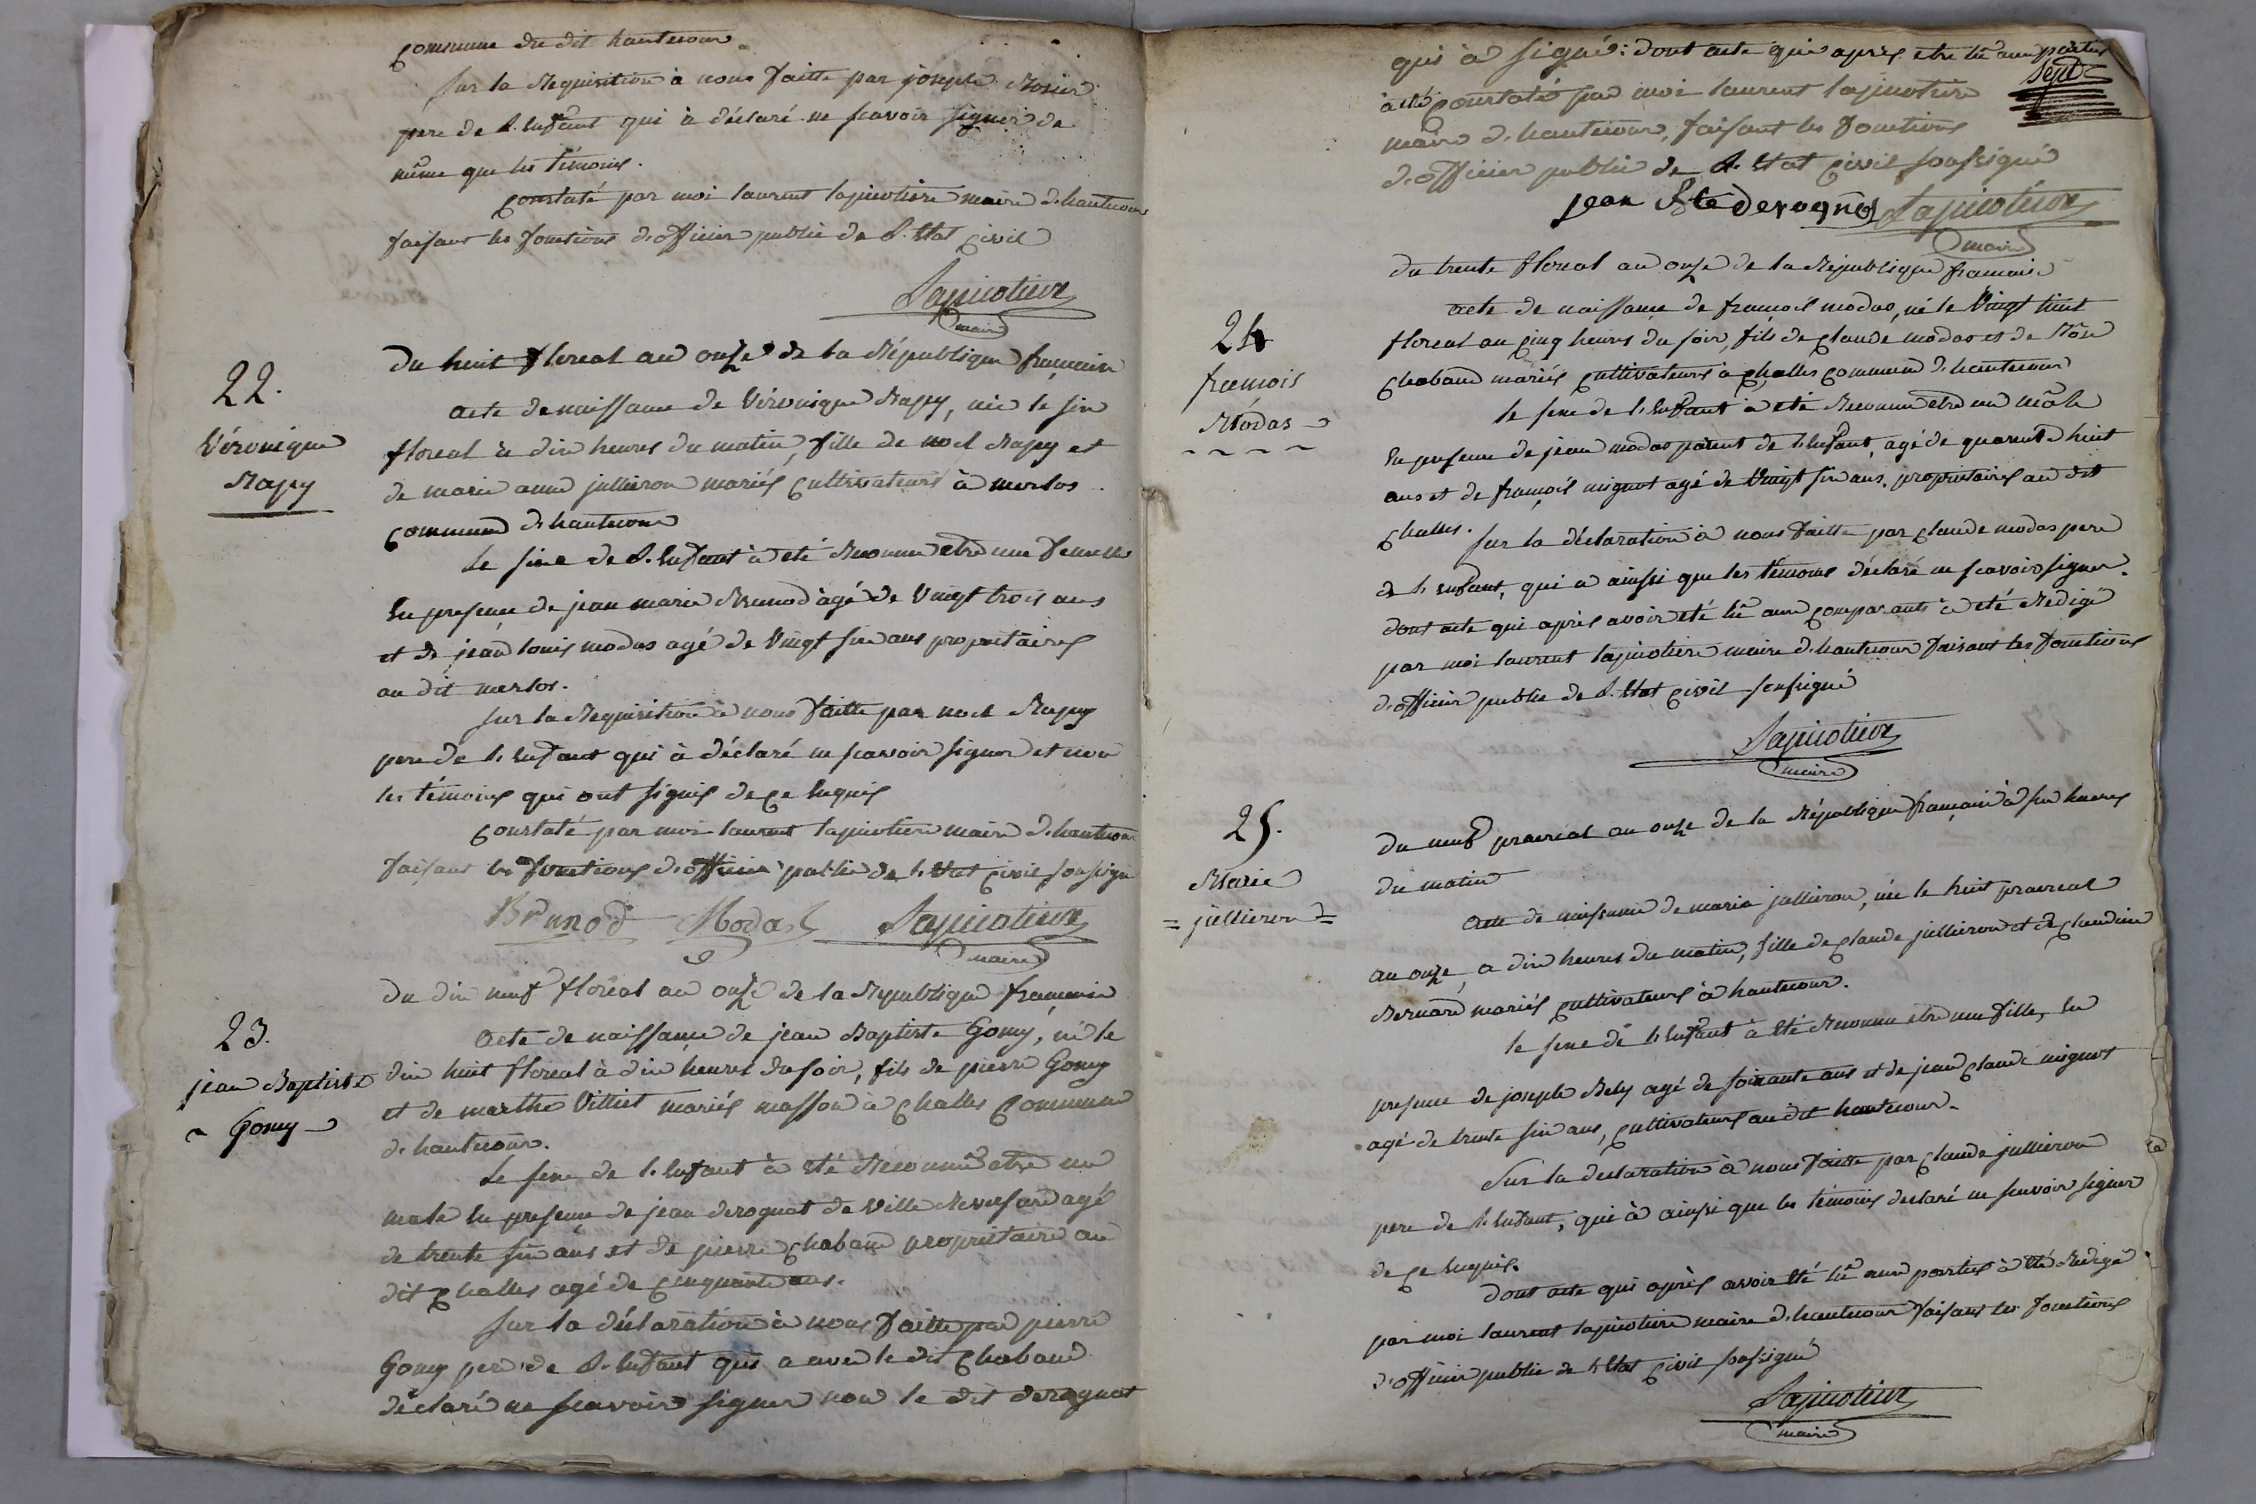 commune du dit hautecour
sur la Requisition à nous faitte par joseph Rosier
pere de l'enfant qui à déclaré ne scavoir signer de
même que les témoins.
constaté par moi laurent lapicotiere maire d'hautecour
faisant les fonctions d'officier public de l'Etat civil
Lapicotiere
maire
22.
Véronique
Rapey
du huit floreal an onze de la République francaise
acte de naissance de Véronique Rapey, née le six
floreal à dix heures du matin, fille de noel Rapey et
de marie anne jullieron mariés cultivateurs à merlos
commune d'hautecour
Le sexe de l'enfant à été Reconnu etre une femelle
En presence de jean marie Brunod agé de Vingt trois ans
et de jean louis modas agé de Vingt six ans propriétaires
au dit merlos.
sur la Requisition à nous faitte par noel Rapey
pere de l'enfant qui à déclaré ne scavoir signer et non
les témoins qui ont signés de ce Enquis
constaté par moi laurent lapicotiere maire d'hautecour
faisant les fonctions d'officier public de l'Etat civil soussigné
Brunod Modas Lapicotiere
maire
23.
jean Baptiste
Gomy
du dix neuf floréal an onze de la Republique francaise
Acte de naissance de jean Baptiste Gomy, né le
dix huit floreal à dix heures du soir, fils de pierre Gomy
et de marthe Villiet mariés masson à challes commune
d'hautecour.
Le sexe de l'enfant à été Reconnu etre un
male En presence de jean deroguat de Ville Reversure agé
de trente six ans et de pierre chaband propriétaire au
dit challes agé de cinquante ans.
sur la déclaration à nous faitte par pierre
Gomy pere de l'enfant qui a avec le dit chaband
déclaré ne scavoir signer non le dit deroguat
qui à signé: dont acte qui après etre lû aux parties
sept
à été constaté par moi laurent lapicotiere
maire d'hautecour, faisant les fonctions
d'officier public de l'Etat civil soussigné
jean Bte derogna Lapicotiere
maire
24
francois
Modas
du trente floreal an onze de la République francaise
acte de naissance de françois modas, né le Vingt huit
floreal au cinq heures du soir, fils de claude modas et de Rose
chaband mariés cultivateurs à challes commune d'hautecour
le sexe de l'enfant à été Reconnu etre un mâle
En presence de jean modas parent de l'enfant, agé de quarente huit
ans et de françois mignot agé de Vingt six ans, propriétaires au dit
challes. sur la déclaration à nous faitte par claude modas pere
de l'enfant, qui a ainsi que les témoins déclaré ne scavoir signer.
dont acte qui après avoir été lû aux comparants à eté Redigé
par moi laurent lapicotiere maire d'hautecour faisant les fonctions
d'officier public de l'Etat civil soussigné
Lapicotiere
maire
25.
Marie
jullieron
du neuf prairial an onze de la République francaise à six heures
du matin
Acte de naissance de marie jullieron, née le huit prairial
an onze, a dix heures du matin, fille de claude jullieron et de claudine
Bernard mariés cultivateurs à hautecour.
le sexe de l'enfant à été Reconnu etre une fille, En
presence de joseph Bely agé de soixante ans et de jean claude mignot
agé de trente six ans, cultivateurs au dit hautecour.
Sur la declaration à nous faitte par claude jullieron
pere de l'enfant, qui à ainsi que les témoins declaré ne scavoir signer
de ce Enquis.
dont acte qui après avoir été lû aux parties à été Redigé
par moi laurent lapicotiere maire d'hautecour faisant les fonctions
d'officier public de l'Etat civil soussigné
Lapicotiere
maire